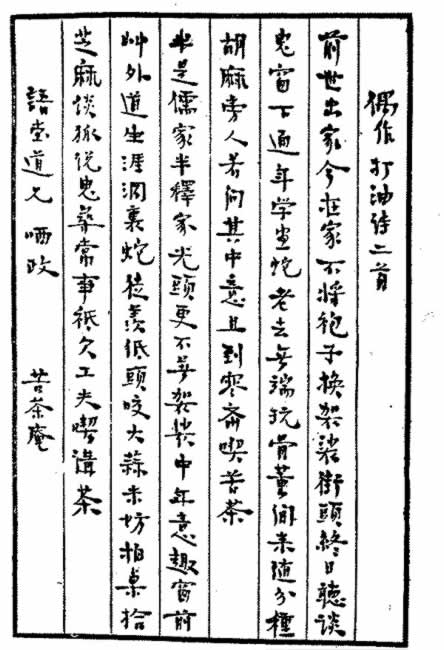 偶作打油诗二首
前世出家今在家不將袍子換袈裟街頭終日聽談
鬼窗下通年学畫蛇老去無端玩骨董閒来随分種
胡麻旁人若問其中意且到寒斋喫苦茶
半是儒家半釋家光頭更不著袈裟中年意趣窗前
艸外道生涯洞裏蛇徒羨低頭咬大蒜未妨拍桌拾
芝麻谈狐说鬼尋常事祗欠工夫喫講茶
語堂道兄 哂政 苦茶庵